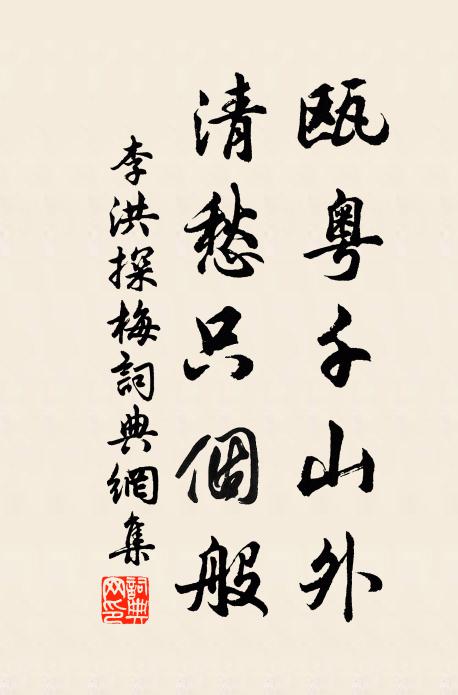 甌粤千山外
清愁只個般
李洪探梅詞典網集
詞典
网印